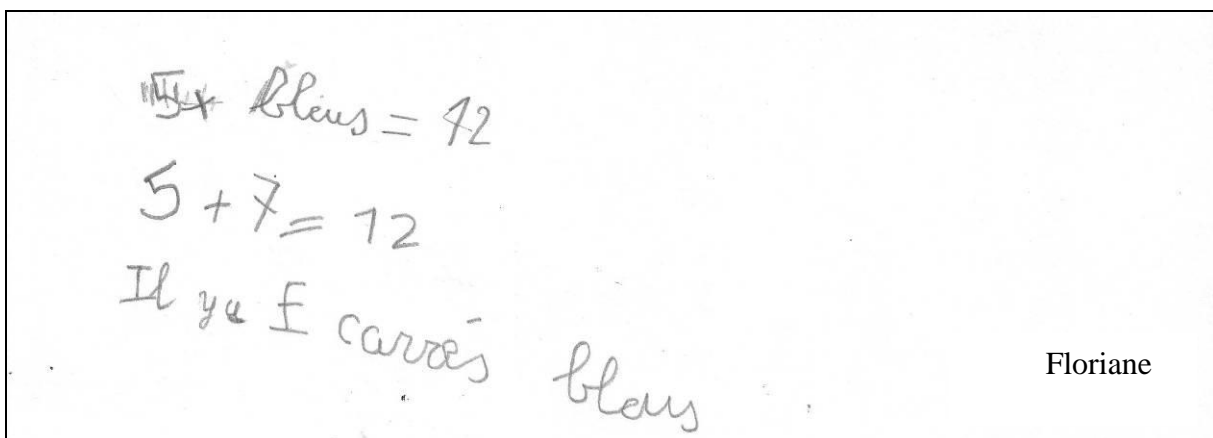 5+ bleus = 12
5 + 7 = 12
Il ya 7 carrés bleus
Floriane